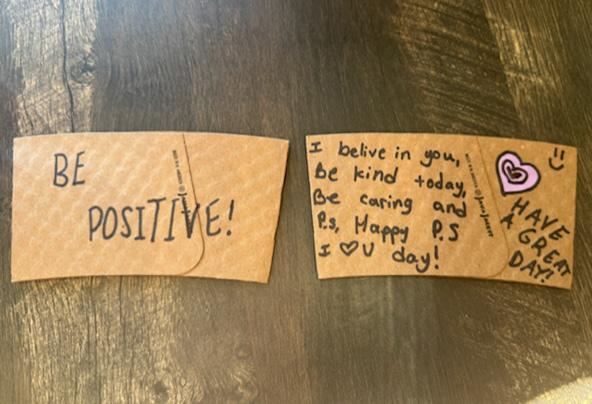 BE
POSITIVE!
I belive in you,
Be kind today,
Be caring and
P.s, Happy P.S
I ♡ U day!
:)
HAVE
A GREAT
DAY!